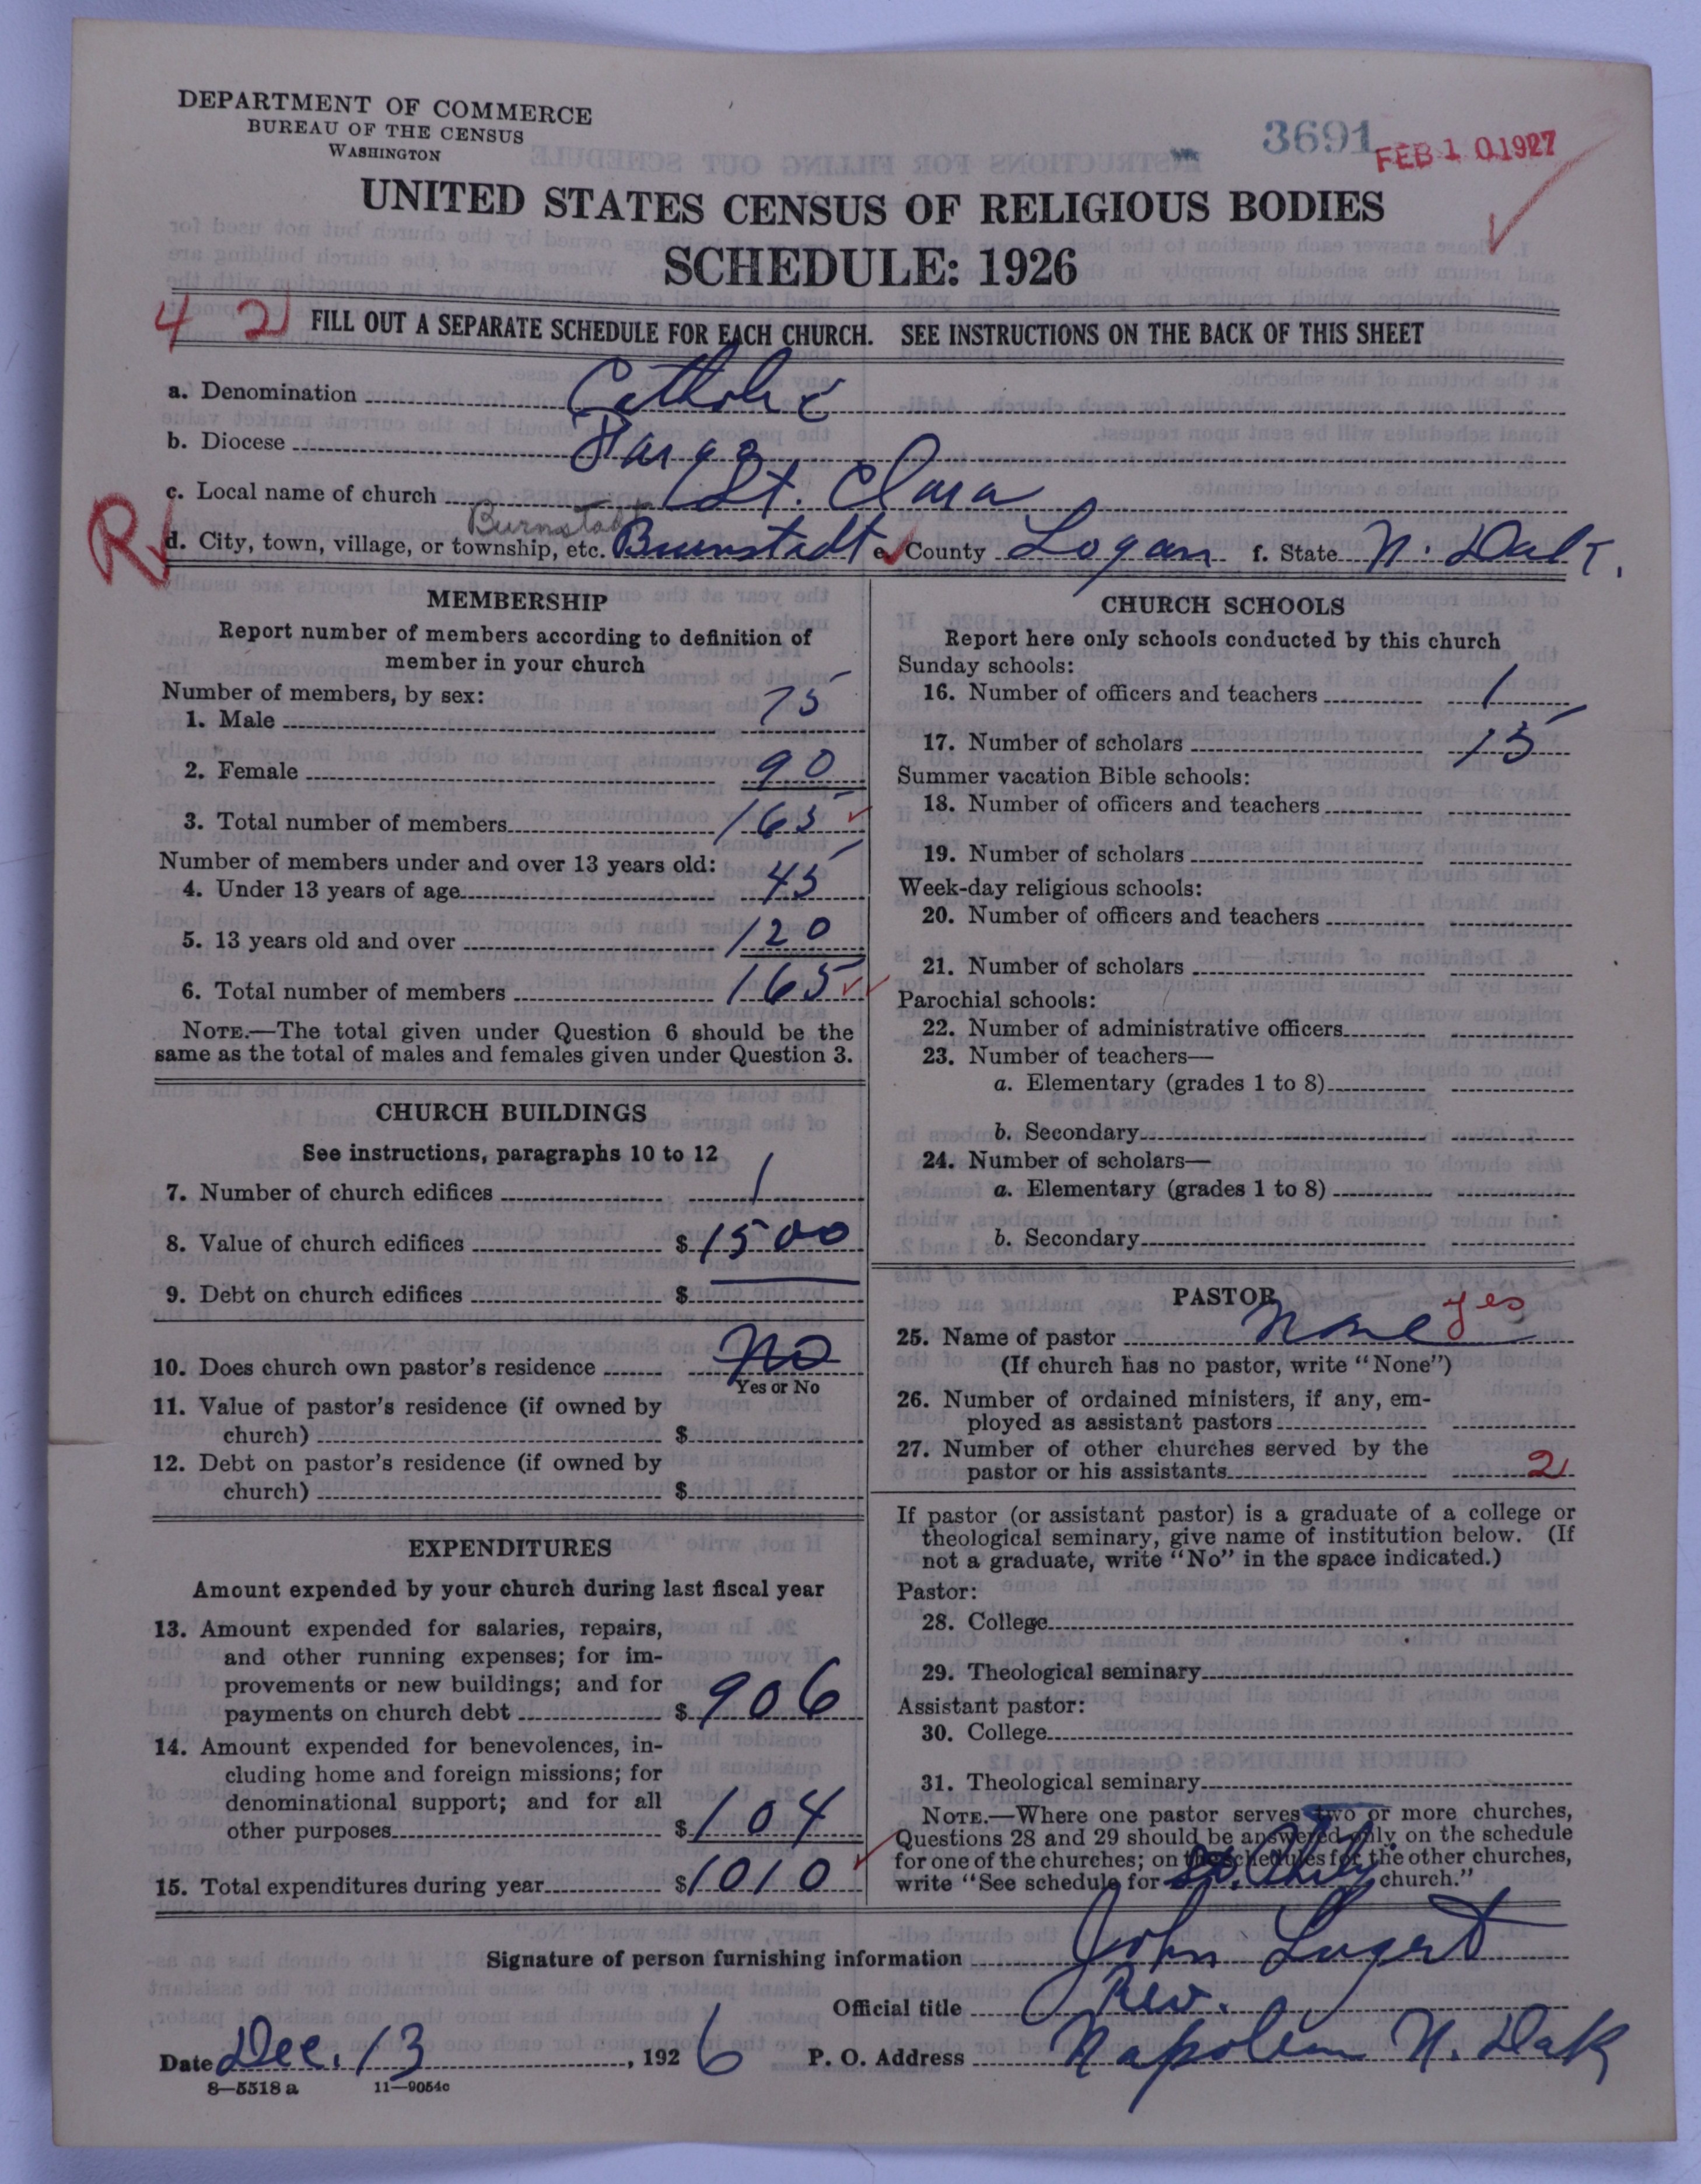 DEPARTMENT OF COMMERCE
BUREAU OF THE CENSUS
WASHINGTON
3691
FEB 10 1927
UNITED STATES CENSUS OF RELIGIOUS BODIES
SCHEDULE: 1926
4 2
FILL OUT A SEPARATE SCHEDULE FOR EACH CHURCH. SEE INSTRUCTIONS ON THE BACK OF THIS SHEET
a. Denomination Catholic
b. Diocese Fargo
c. Local name of church St. Clara
Burnstadt
R
d. City, town, village, or township, etc. Burnstedt e. County Logan f. State N. Dak.
MEMBERSHIP
Report number of members according to definition of
member in your church
Number of members, by sex:
1. Male 75
2. Female 90
3. Total number of members 165
Number of members under and over 13 years old:
4. Under 13 years of age 45
5. 13 years old and over 120
6. Total number of members 165
NOTE.—The total given under Question 6 should be the
same as the total of males and females given under Question 3.
CHURCH BUILDINGS
See instructions, paragraphs 10 to 12
7. Number of church edifices 1
8. Value of church edifices $ 1500
9. Debt on church edifices $
10. Does church own pastor's residence No
Yes or No
11. Value of pastor's residence (if owned by
church) $
12. Debt on pastor's residence (if owned by
church) $
EXPENDITURES
Amount expended by your church during last fiscal year
13. Amount expended for salaries, repairs,
and other running expenses; for im-
provements or new buildings; and for
payments on church debt $ 906
14. Amount expended for benevolences, in-
cluding home and foreign missions; for
denominational support; and for all
other purposes $ 104
15. Total expenditures during year $ 1010
CHURCH SCHOOLS
Report here only schools conducted by this church
Sunday schools:
16. Number of officers and teachers 1
17. Number of scholars 15
Summer vacation Bible schools:
18. Number of officers and teachers
19. Number of scholars
Week-day religious schools:
20. Number of officers and teachers
21. Number of scholars
Parochial schools:
22. Number of administrative officers
23. Number of teachers—
a. Elementary (grades 1 to 8)
b. Secondary
24. Number of scholars—
a. Elementary (grades 1 to 8)
b. Secondary
PASTOR
yes
25. Name of pastor None
(If church has no pastor, write "None")
26. Number of ordained ministers, if any, em-
ployed as assistant pastors
27. Number of other churches served by the
pastor or his assistants 2
If pastor (or assistant pastor) is a graduate of a college or
theological seminary, give name of institution below. (If
not a graduate, write "No" in the space indicated.)
Pastor:
28. College
29. Theological seminary
Assistant pastor:
30. College
31. Theological seminary
NOTE.—Where one pastor serves two or more churches,
Questions 28 and 29 should be answered only on the schedule
for one of the churches; on the schedules for the other churches,
write "See schedule for St. church."
Signature of person furnishing information John Lugert
Official title Rev.
Date Dec. 13, 1926 P. O. Address Napoleon N. Dak
8—5518 a 11—9054c